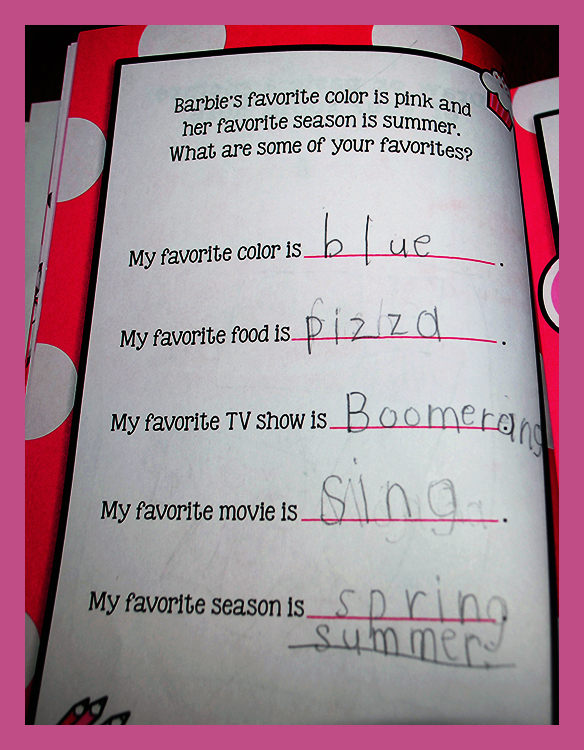 Barbie's favorite color is pink and
her favorite season is summer.
What are some of your favorites?
My favorite color is blue.
My favorite food is pizza.
My favorite TV show is Boomerang
My favorite movie is Sing.
My favorite season is spring
summer.